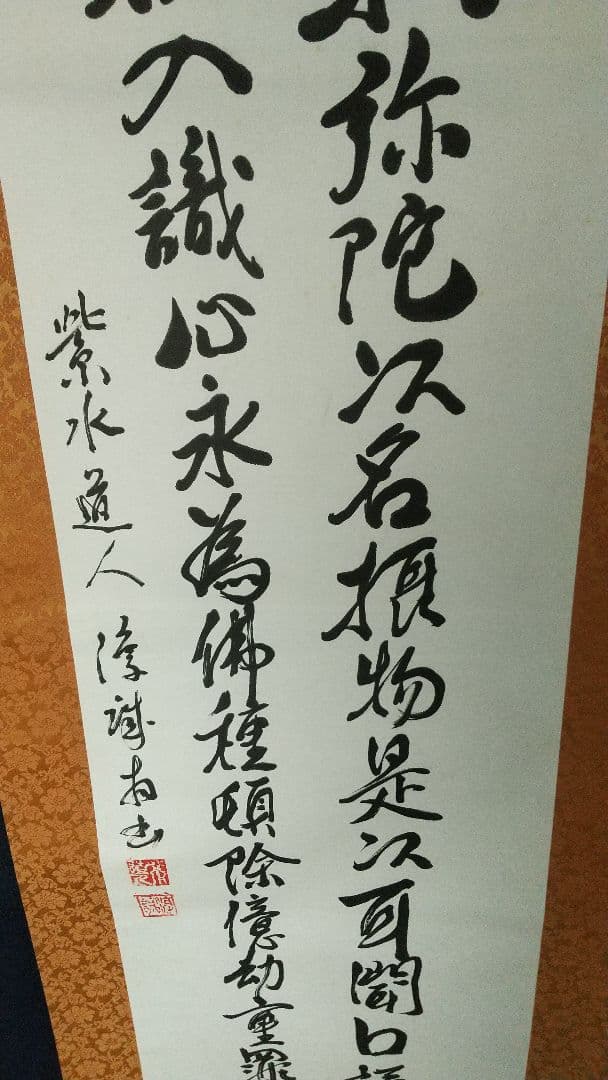 弥陀以名摂物是以耳聞口
入識心永為佛種頓除億劫重罪
紫水道人淳誠書